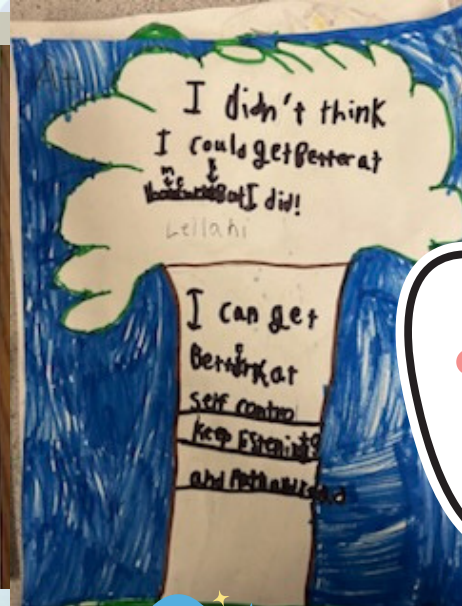 I didn't think
I could get Better at
But I did!
Leilani
I can get
Better at
self control
keep listening
and